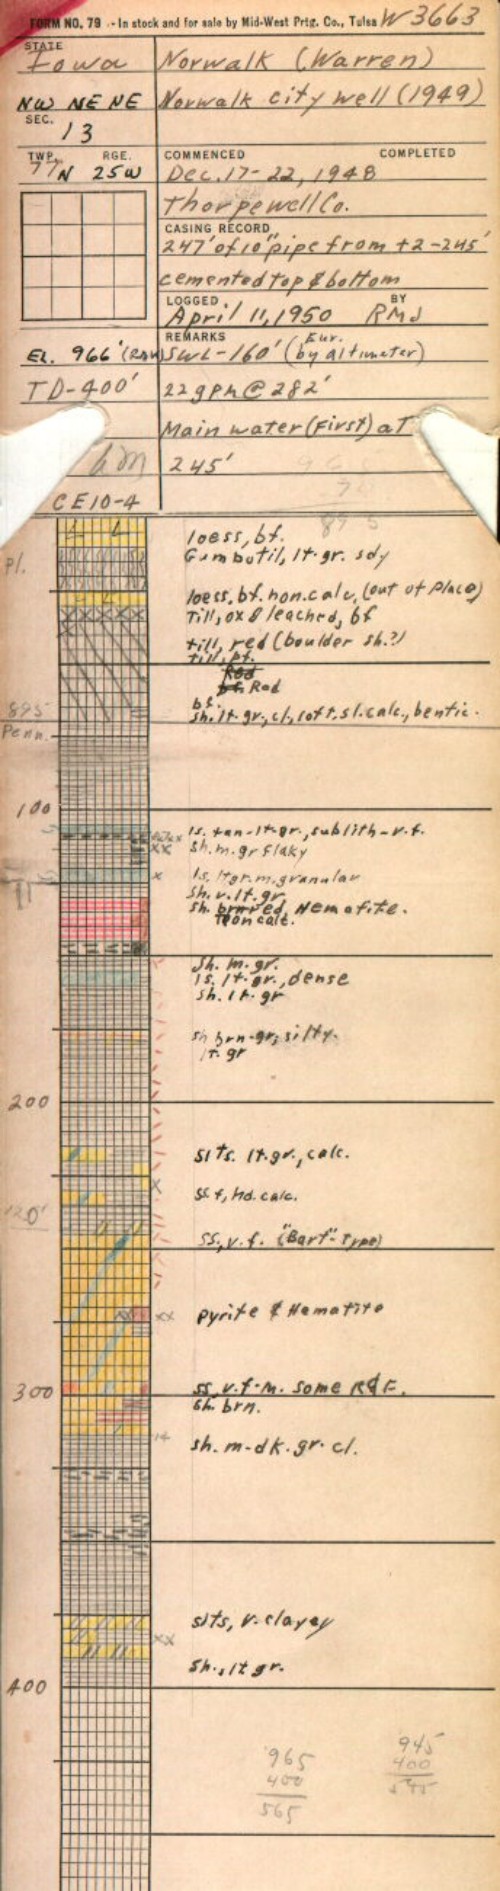 FORM NO. 79 - In stock and for sale by Mid-West Prtg. Co., Tulsa W3663
STATE
Iowa Norwalk (Warren)
NW NE NE Norwalk city well (1949)
SEC.
13
TWP. RGE. COMMENCED COMPLETED
77N 25W Dec. 17-22, 1948
Thorpe well Co.
CASING RECORD
247' of 10" pipe from +2-245'
cemented top & bottom
LOGGED BY
April 11, 1950 RMJ
REMARKS
EL. 966' SWL-160' (by altimeter)
TD-400' 22 gpm @ 282'
Main water (First) at
245'
CE10-4
895
loess, bf.
Gumbotil, lt. gr. sdy
Pl.
loess, bf. non.calc. (out of place)
Till, ox & leached, bf
till, red (boulder sh.?)
till, pt.
Red
bf. Red
bf.
895 sh. lt. gr., cl., soft. sl. calc., bentic.
Penn.
100
ls. tan-lt. gr., sublith-v.f.
sh. m. gr flaky
ls. lt gr. m. granular
sh. v. lt. gr
sh. brn red, Hematite.
noncalc.
sh. m. gr.
ls. lt. gr., dense
sh. lt. gr
sh brn-gr; silty.
lt. gr
200
slts. lt. gr., calc.
ss f, hd. calc.
ss, v. f. ("Bart" Type)
pyrite & Hematite
300 ss, v.f-m. some R&F.
sh. brn.
sh. m-dk. gr. cl.
slts, v. clayey
sh., lt gr.
400
965 945
400 400
565 545